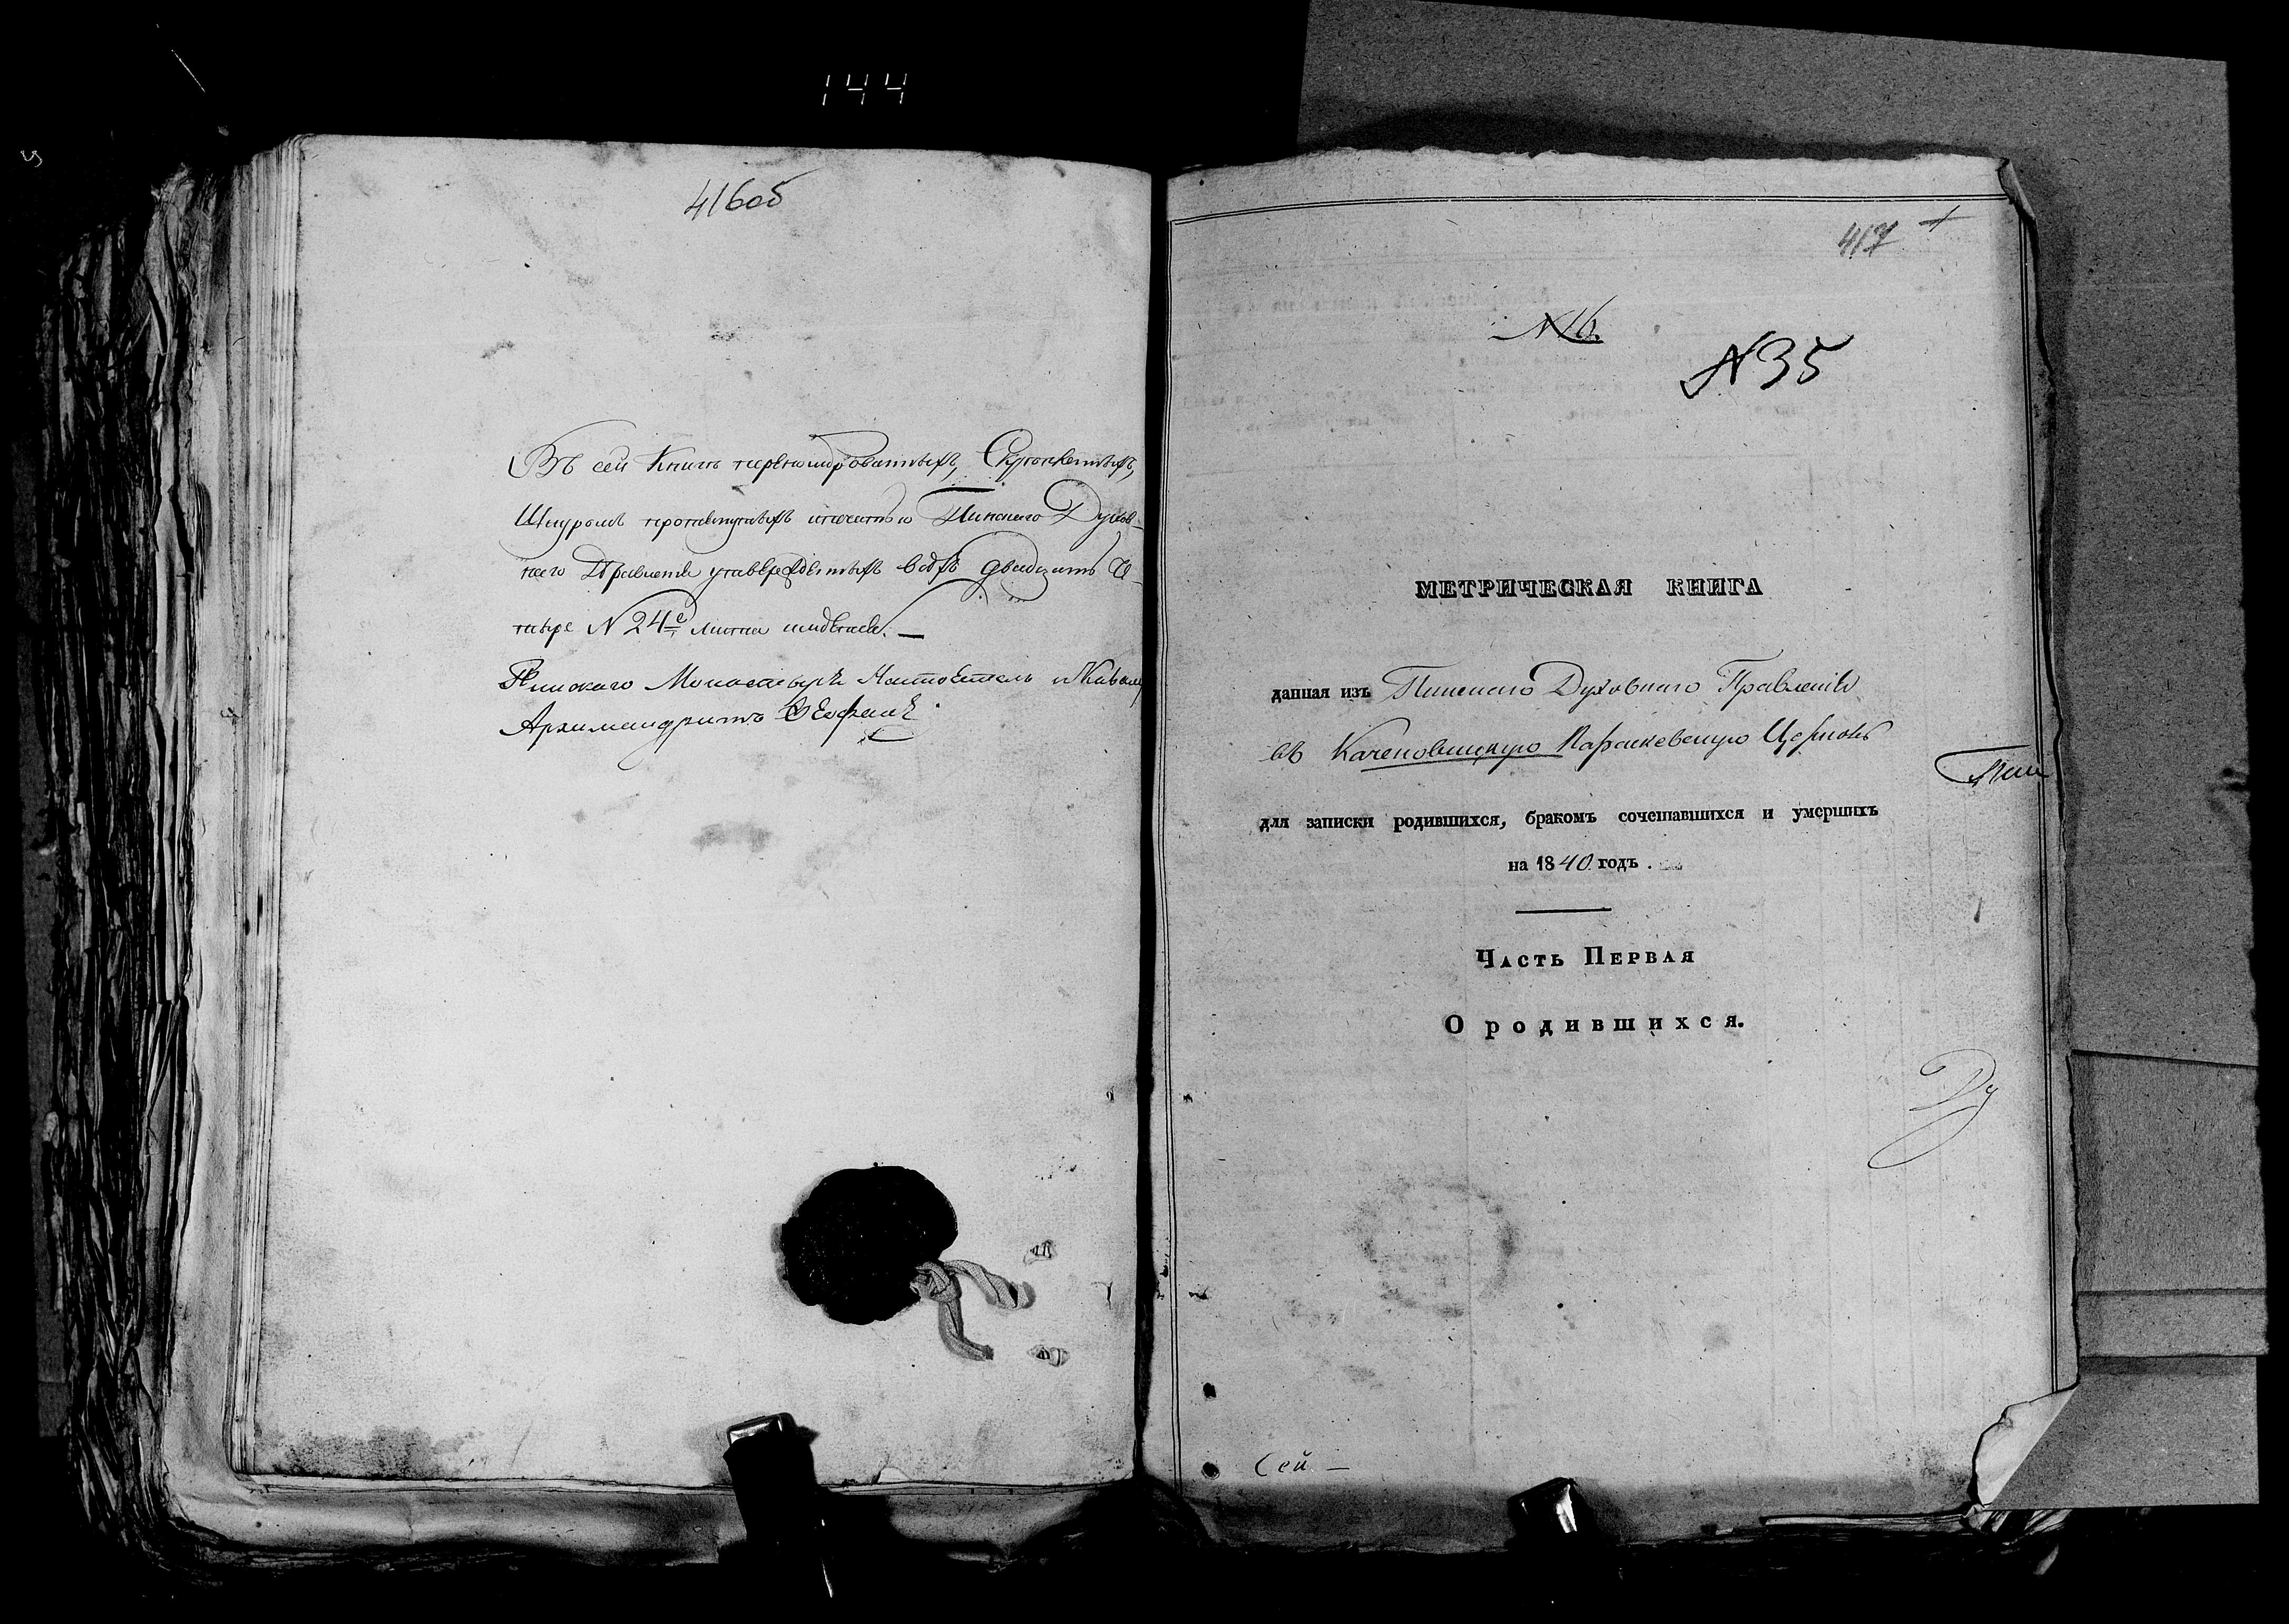 144
416об
Въ сей Книгѣ перенумерованныхъ, Скрѣпленныхъ,
Шнуромъ протянутыхъ ипечатью Пинскаго Духов-
наго Правленія утвержденныхъ всѣхъ двадцать че-
тыре N 24е листа
Пинскаго Монастыря Настоятель и Кавалер
Архимандритъ
417
N 6.
N 35
МЕТРИЧЕСКАЯ КНИГА
данная изъ Пинскаго Духовнаго Правленія
въ Каченовицкую Параскевскую Церковь
Пин
для записки родившихся, бракомъ сочетавшихся и умершихъ
на 1840 годъ.
Часть Первая
О родившихся.
Ду
Сей